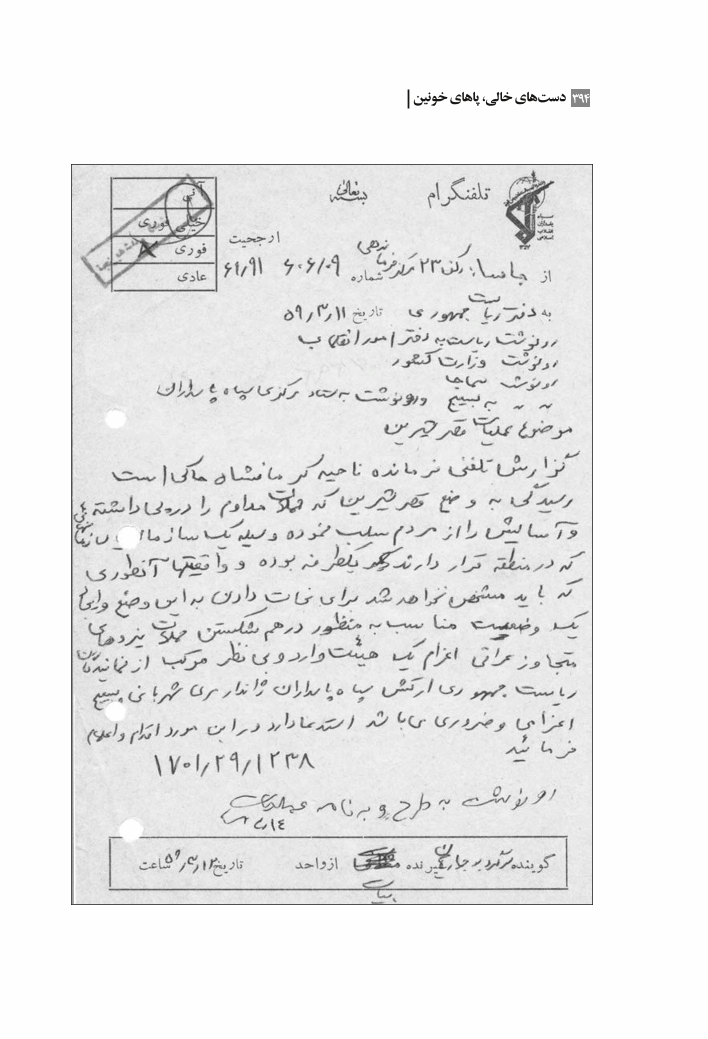 ۳۹۴ دست‌های خالی، پاهای خونین
بسمه تعالی
تلفنگرام
سپاه پاسداران انقلاب اسلامی
آنی
خیلی فوری
فوری
عادی
ارجحیت
از جاسا: رکن ۲۳ مرکز فرماندهی شماره
به دفتر ریاست جمهوری تاریخ ۵۹/۳/۱۱
رونوشت ریاست به دفتر امور انقلاب
رونوشت وزارت کشور
رونوشت سماجا
〃 〃 به بسیج ورونوشت به ستاد مرکزی سپاه پاسداران
موضوع عملیات قصرشیرین
گزارش تلفنی فرمانده ناحیه کرمانشاه حاکی است
رسیدگی به وضع قصرشیرین که حملات مداوم را درپی داشته
و آسایش را از مردم سلب نموده وسیله یک
که در منطقه قرار دارند یکطرفه بوده و واقعیتها آنطوری
که باید مشخص نخواهد شد برای نجات دادن به این وضع و
یک وضعیت مناسب به منظور درهم شکستن حملات نیروهای
متجاوز عراقی اعزام یک هیئت وارد و بی نظر مرکب از نمایندگان
ریاست جمهوری ارتش سپاه پاسداران ژاندارمری شهربانی بسیج
اعزامی و ضروری می باشد استدعا دارد در این مورد اقدام و اعلام
فرمائید
۱۷۰۱/۲۹/۱۲۳۸
رونوشت به طرح و برنامه عملیات
گوینده گیرنده از واحد تاریخ ساعت